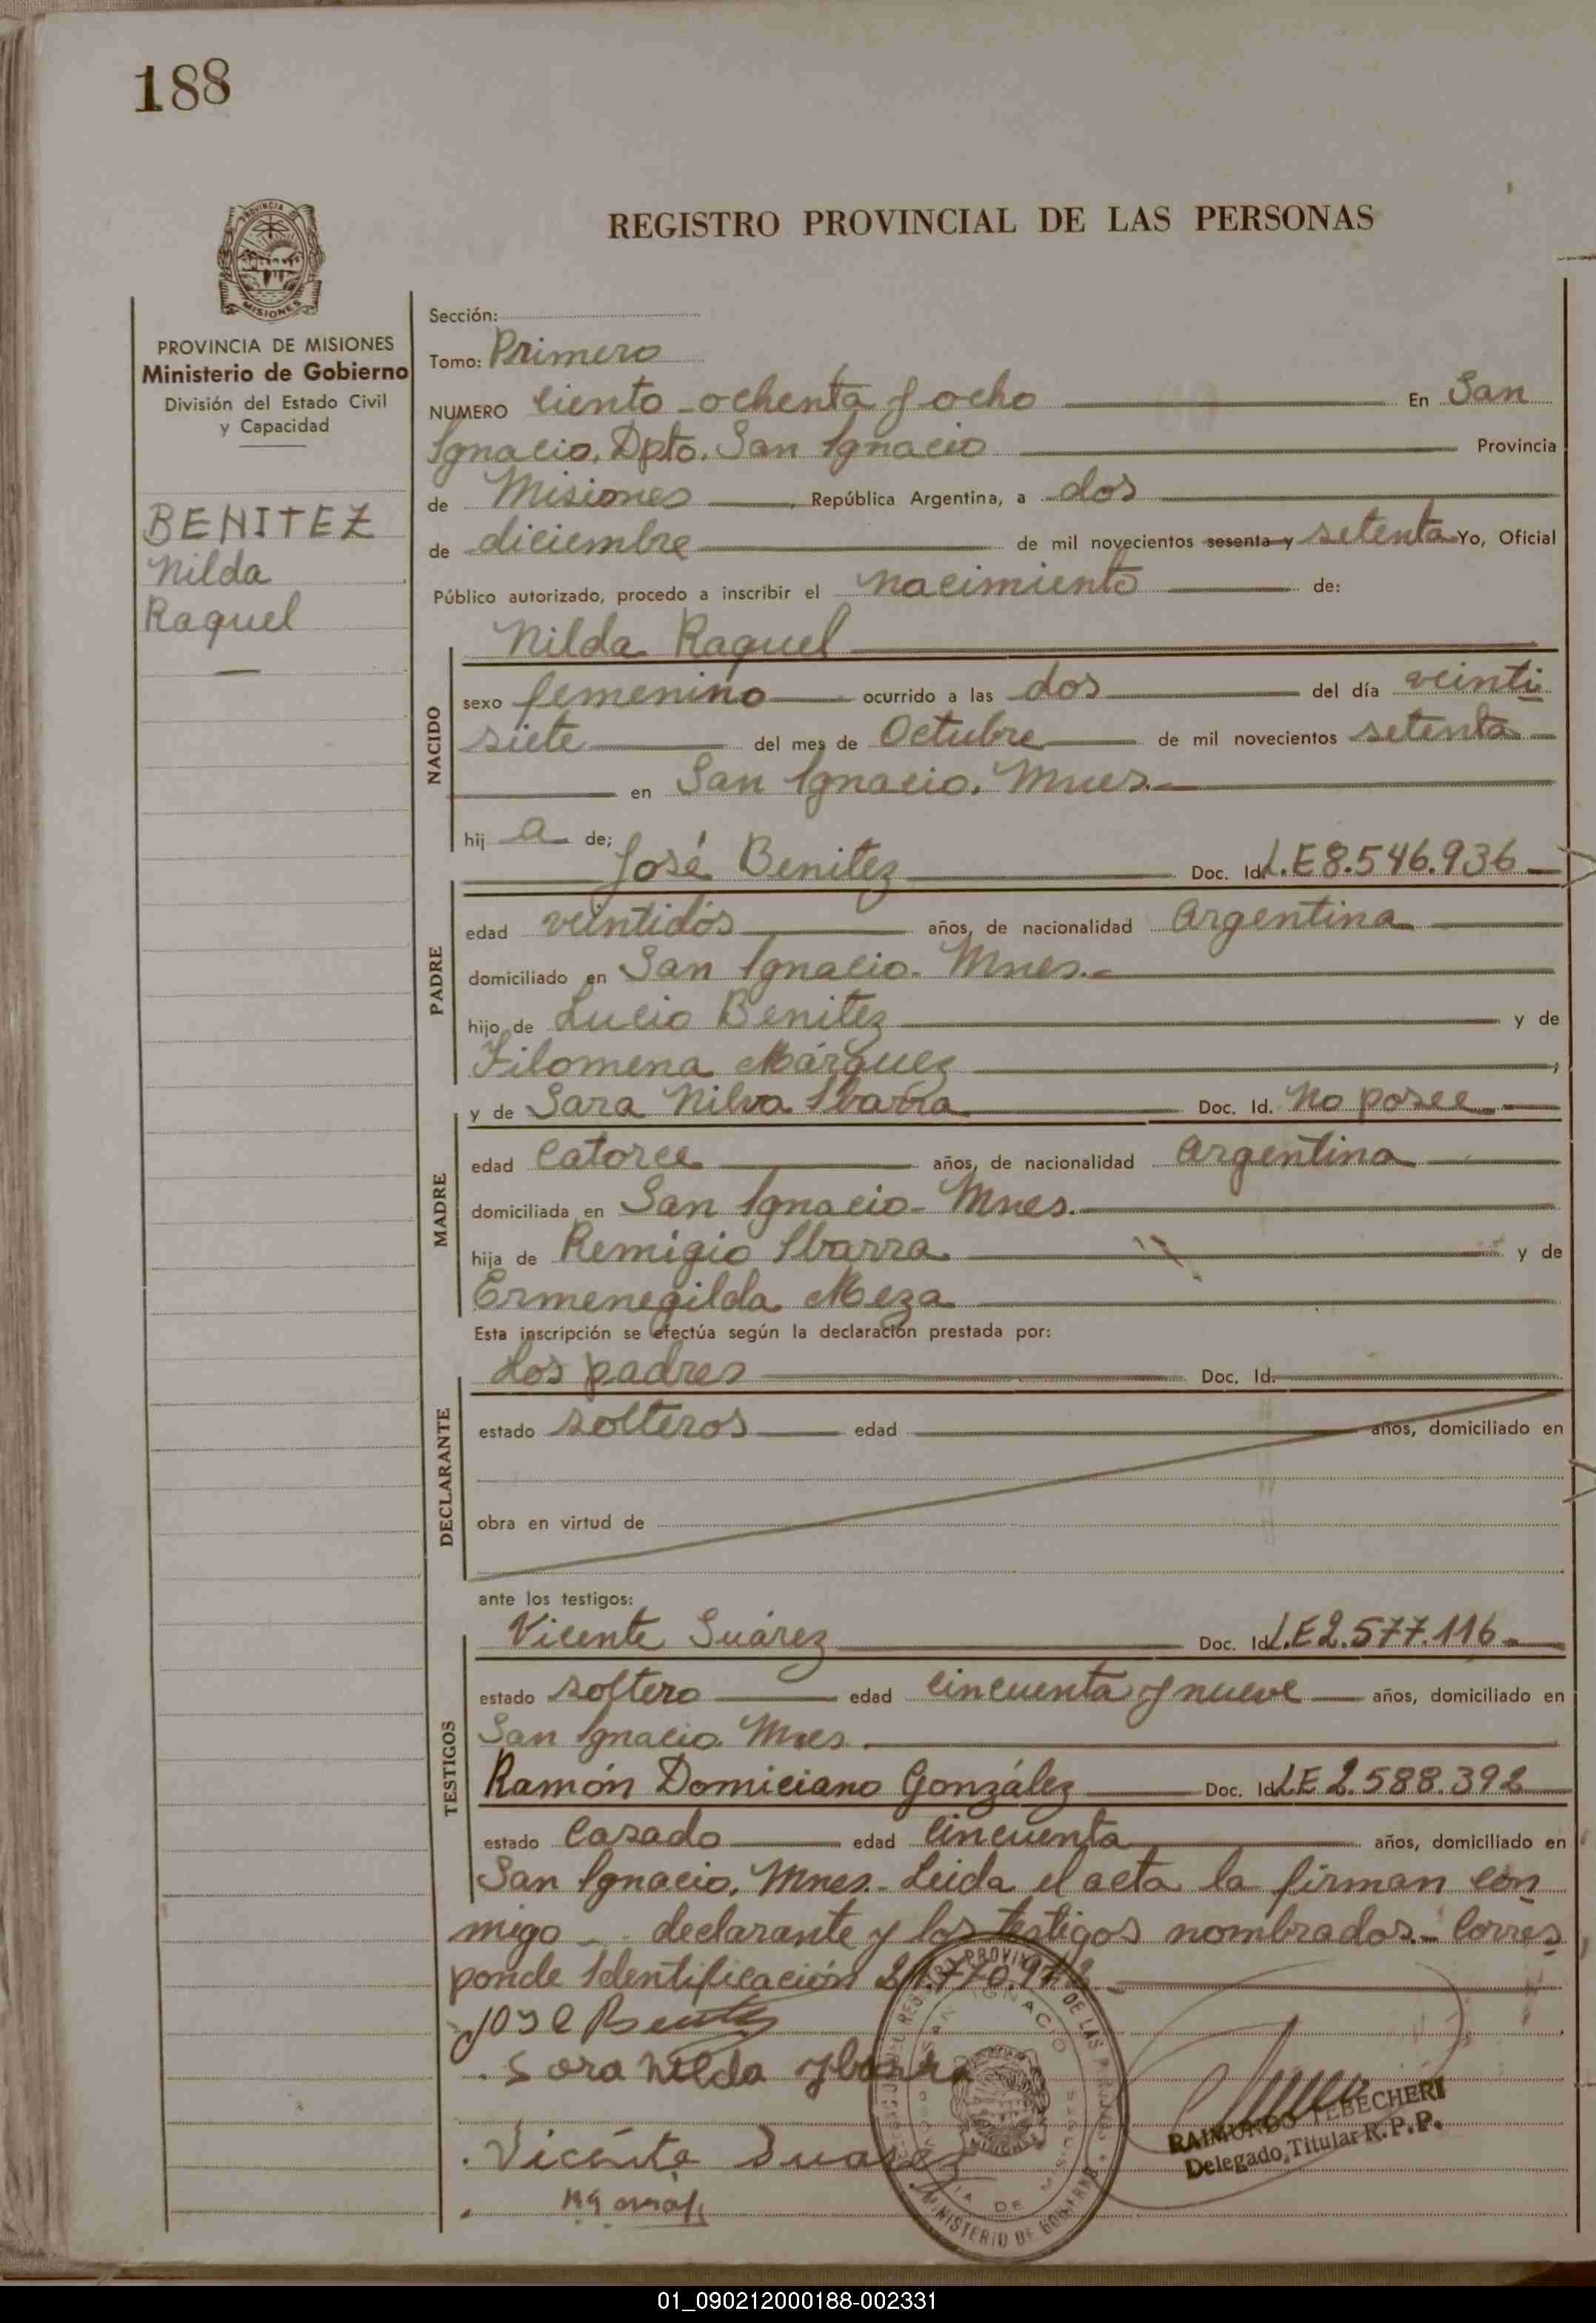 188
REGISTRO PROVINCIAL DE LAS PERSONAS
PROVINCIA DE
MISIONES
PROVINCIA DE MISIONES
Ministerio de Gobierno
División del Estado Civil
y Capacidad
BENITEZ
Nilda
Raquel
Sección:
Tomo: Primero
NUMERO Ciento ochenta y ocho En San
Ignacio, Dpto. San Ignacio Provincia
de Misiones, República Argentina, a dos
de diciembre de mil novecientos sesenta y setenta Yo, Oficial
Público autorizado, procedo a inscribir el nacimiento de:
Nilda Raquel
NACIDO
sexo femenino ocurrido a las dos del día veinti
siete del mes de Octubre de mil novecientos setenta
en San Ignacio, Mnes.
hij a de;
José Benitez Doc. Id. L.E 8.546.936
PADRE
edad veintidós años, de nacionalidad Argentina
domiciliado en San Ignacio. Mnes.
hijo de Lucio Benitez y de
Filomena Márquez,
y de Sara Nilva Ibarra Doc. Id. No posee
MADRE
edad Catorce años, de nacionalidad Argentina
domiciliada en San Ignacio - Mnes.
hija de Remigio Ibarra y de
Ermenegilda Meza
Esta inscripción se efectúa según la declaración prestada por:
Los padres Doc. Id.
DECLARANTE
estado solteros edad años, domiciliado en
obra en virtud de
ante los testigos:
Vicente Suárez Doc. Id. L.E 2.577.116
TESTIGOS
estado soltero edad Cincuenta y nueve años, domiciliado en
San Ignacio Mnes.
Ramón Domiciano González Doc. Id. L.E 2.588.392
estado Casado edad Cincuenta años, domiciliado en
San Ignacio, Mnes.- Leida el acta la firman con
migo declarante y los testigos nombrados.- Corres
ponde Identificación
Jose Benitez
Sara Nilda Ybarra
Vicente Suarez
RAIMUNDO TEBECHERI
Delegado Titular R.P.P.
MINISTERIO DE GOBIERNO
01_090212000188-002331